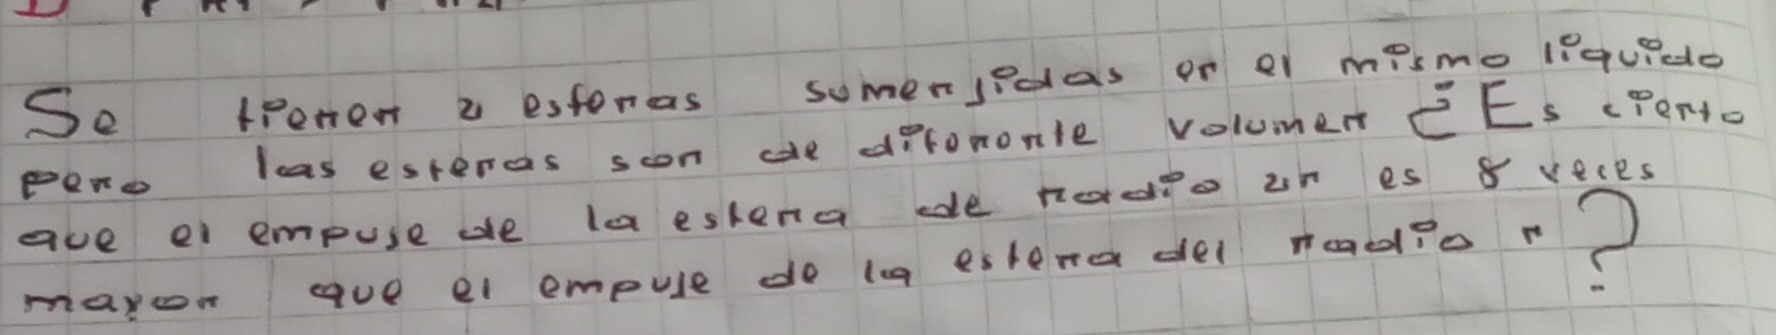 Se tienen 2 esferas sumerjidas en el mismo liquido
pero las esferas son de diferente volumen ¿Es cierto
que el empuje de la esfera de radio 2r es 8 veces
mayor que el empuje de la esfera del radio r ?